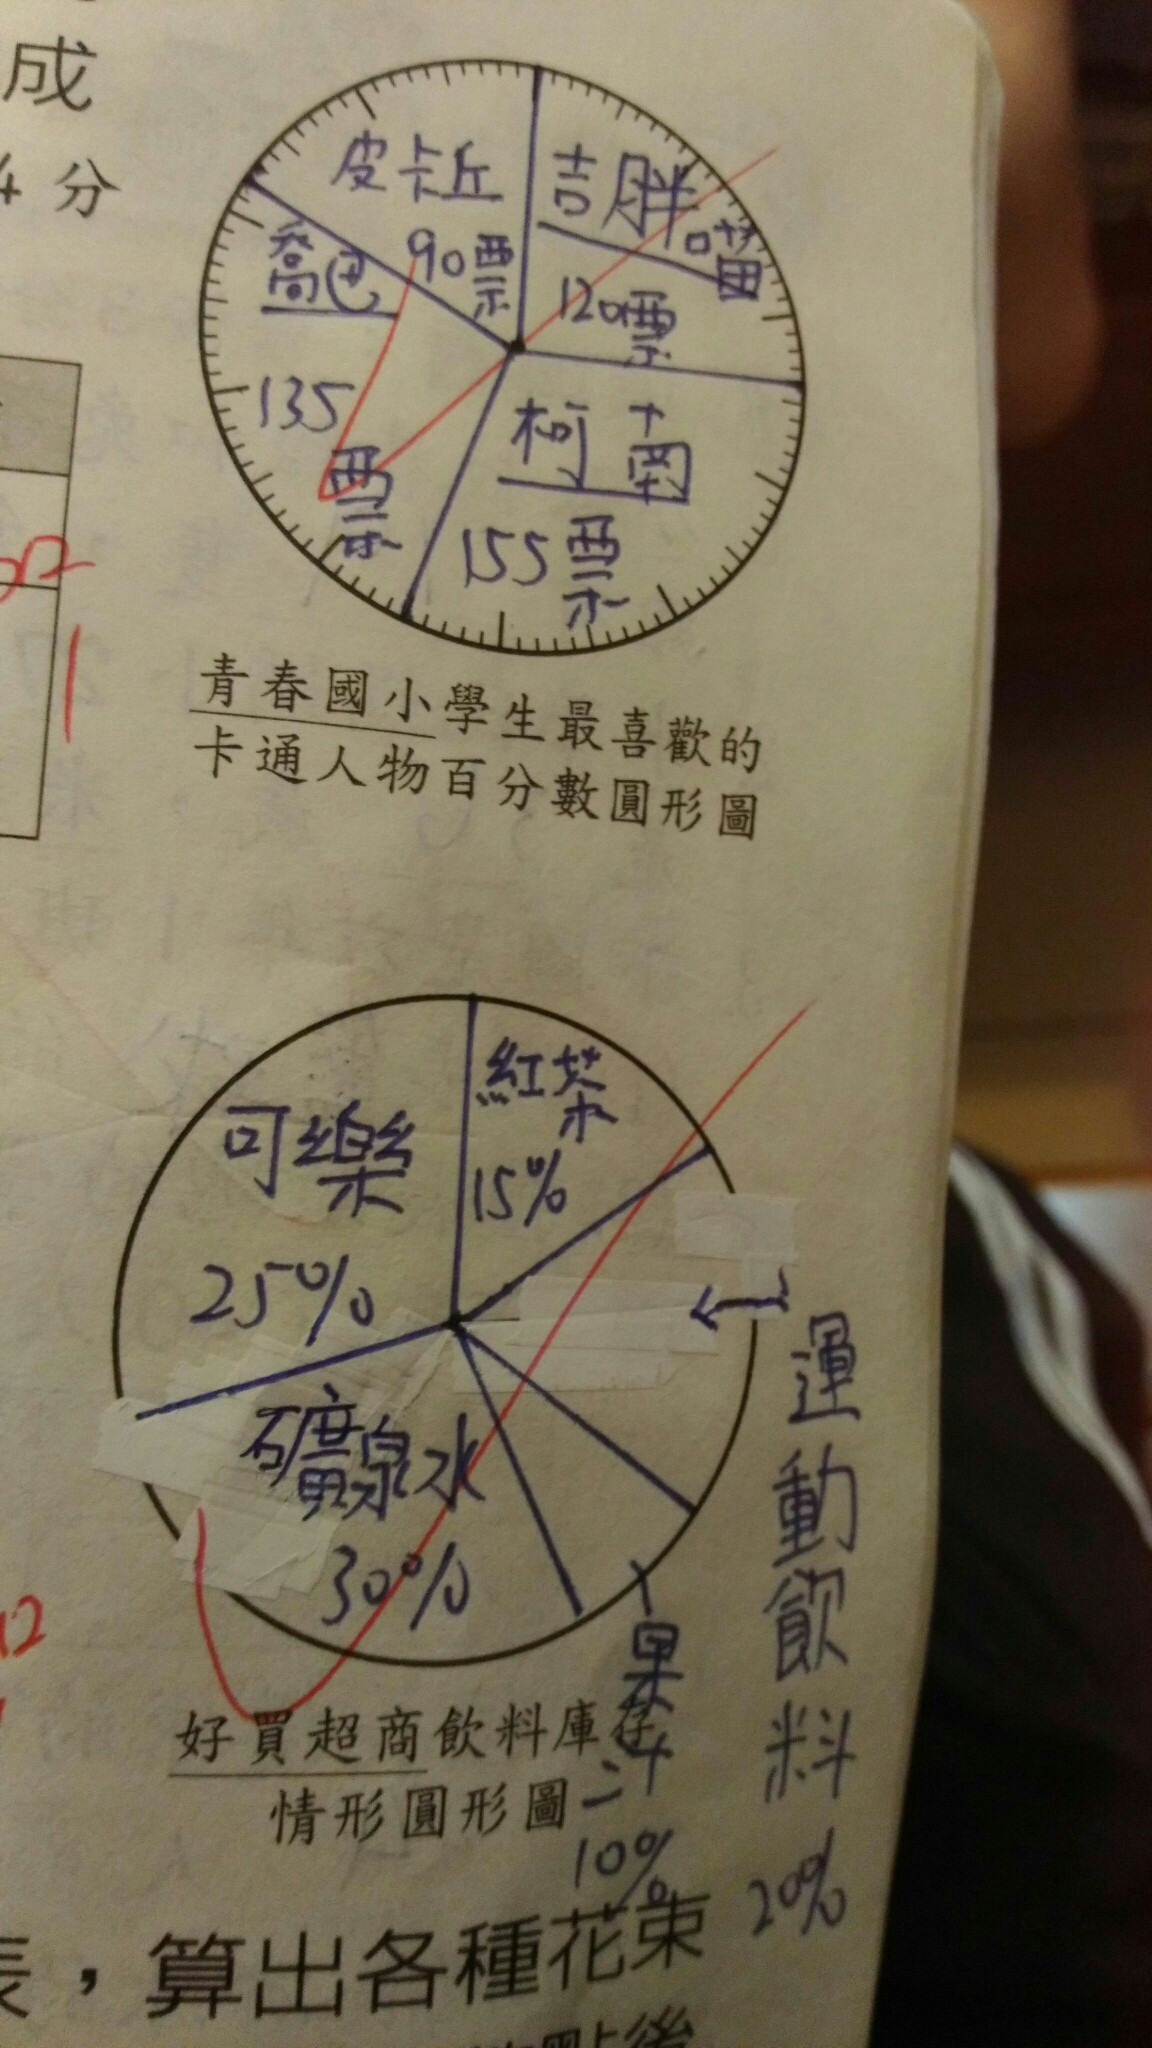 成
4分
皮卡丘
90票
吉胖喵
120票
喬巴
135
票
柯南
155票
青春國小學生最喜歡的
卡通人物百分數圓形圖
紅茶
15%
可樂
25%
礦泉水
30%
運動飲料
20%
果汁
10%
好買超商飲料庫存
情形圓形圖
表，算出各種花束